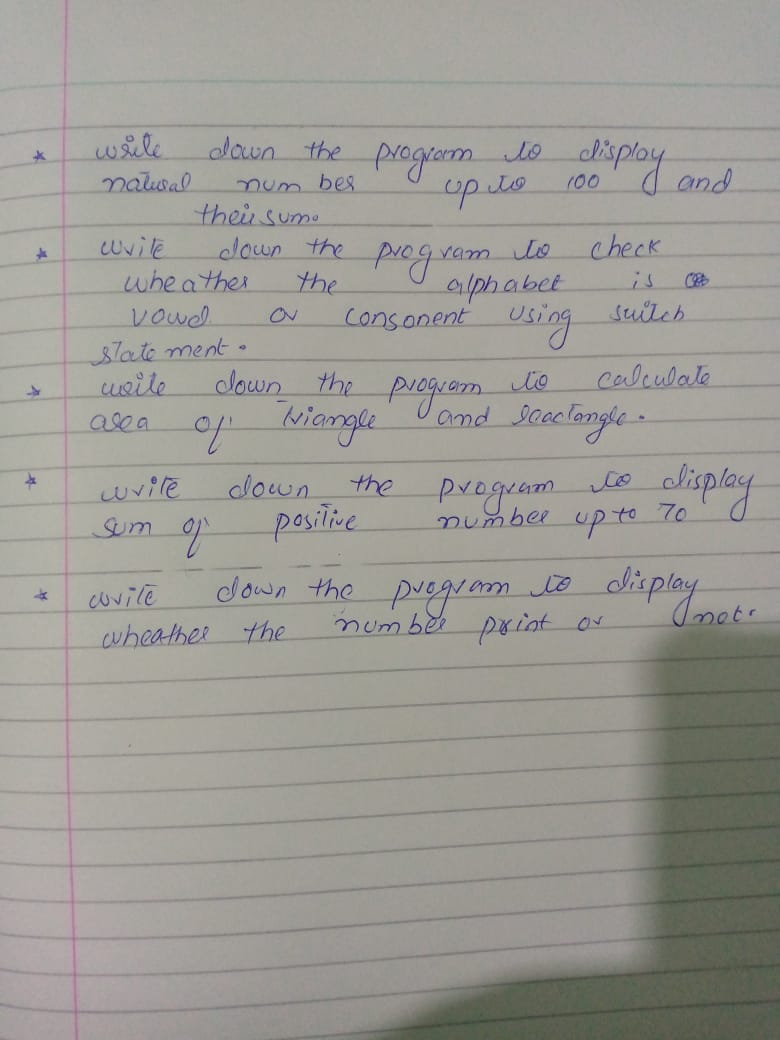 * write down the program to display
natural number up to 100 and
their sum.
* write down the program to check
wheather the alphabet is
vowel or consonent using switch
statement.
* write down the program to calculate
area of Triangle and
* write down the program to display
sum of positive number up to 70
* write down the program to display
wheather the number print or not.